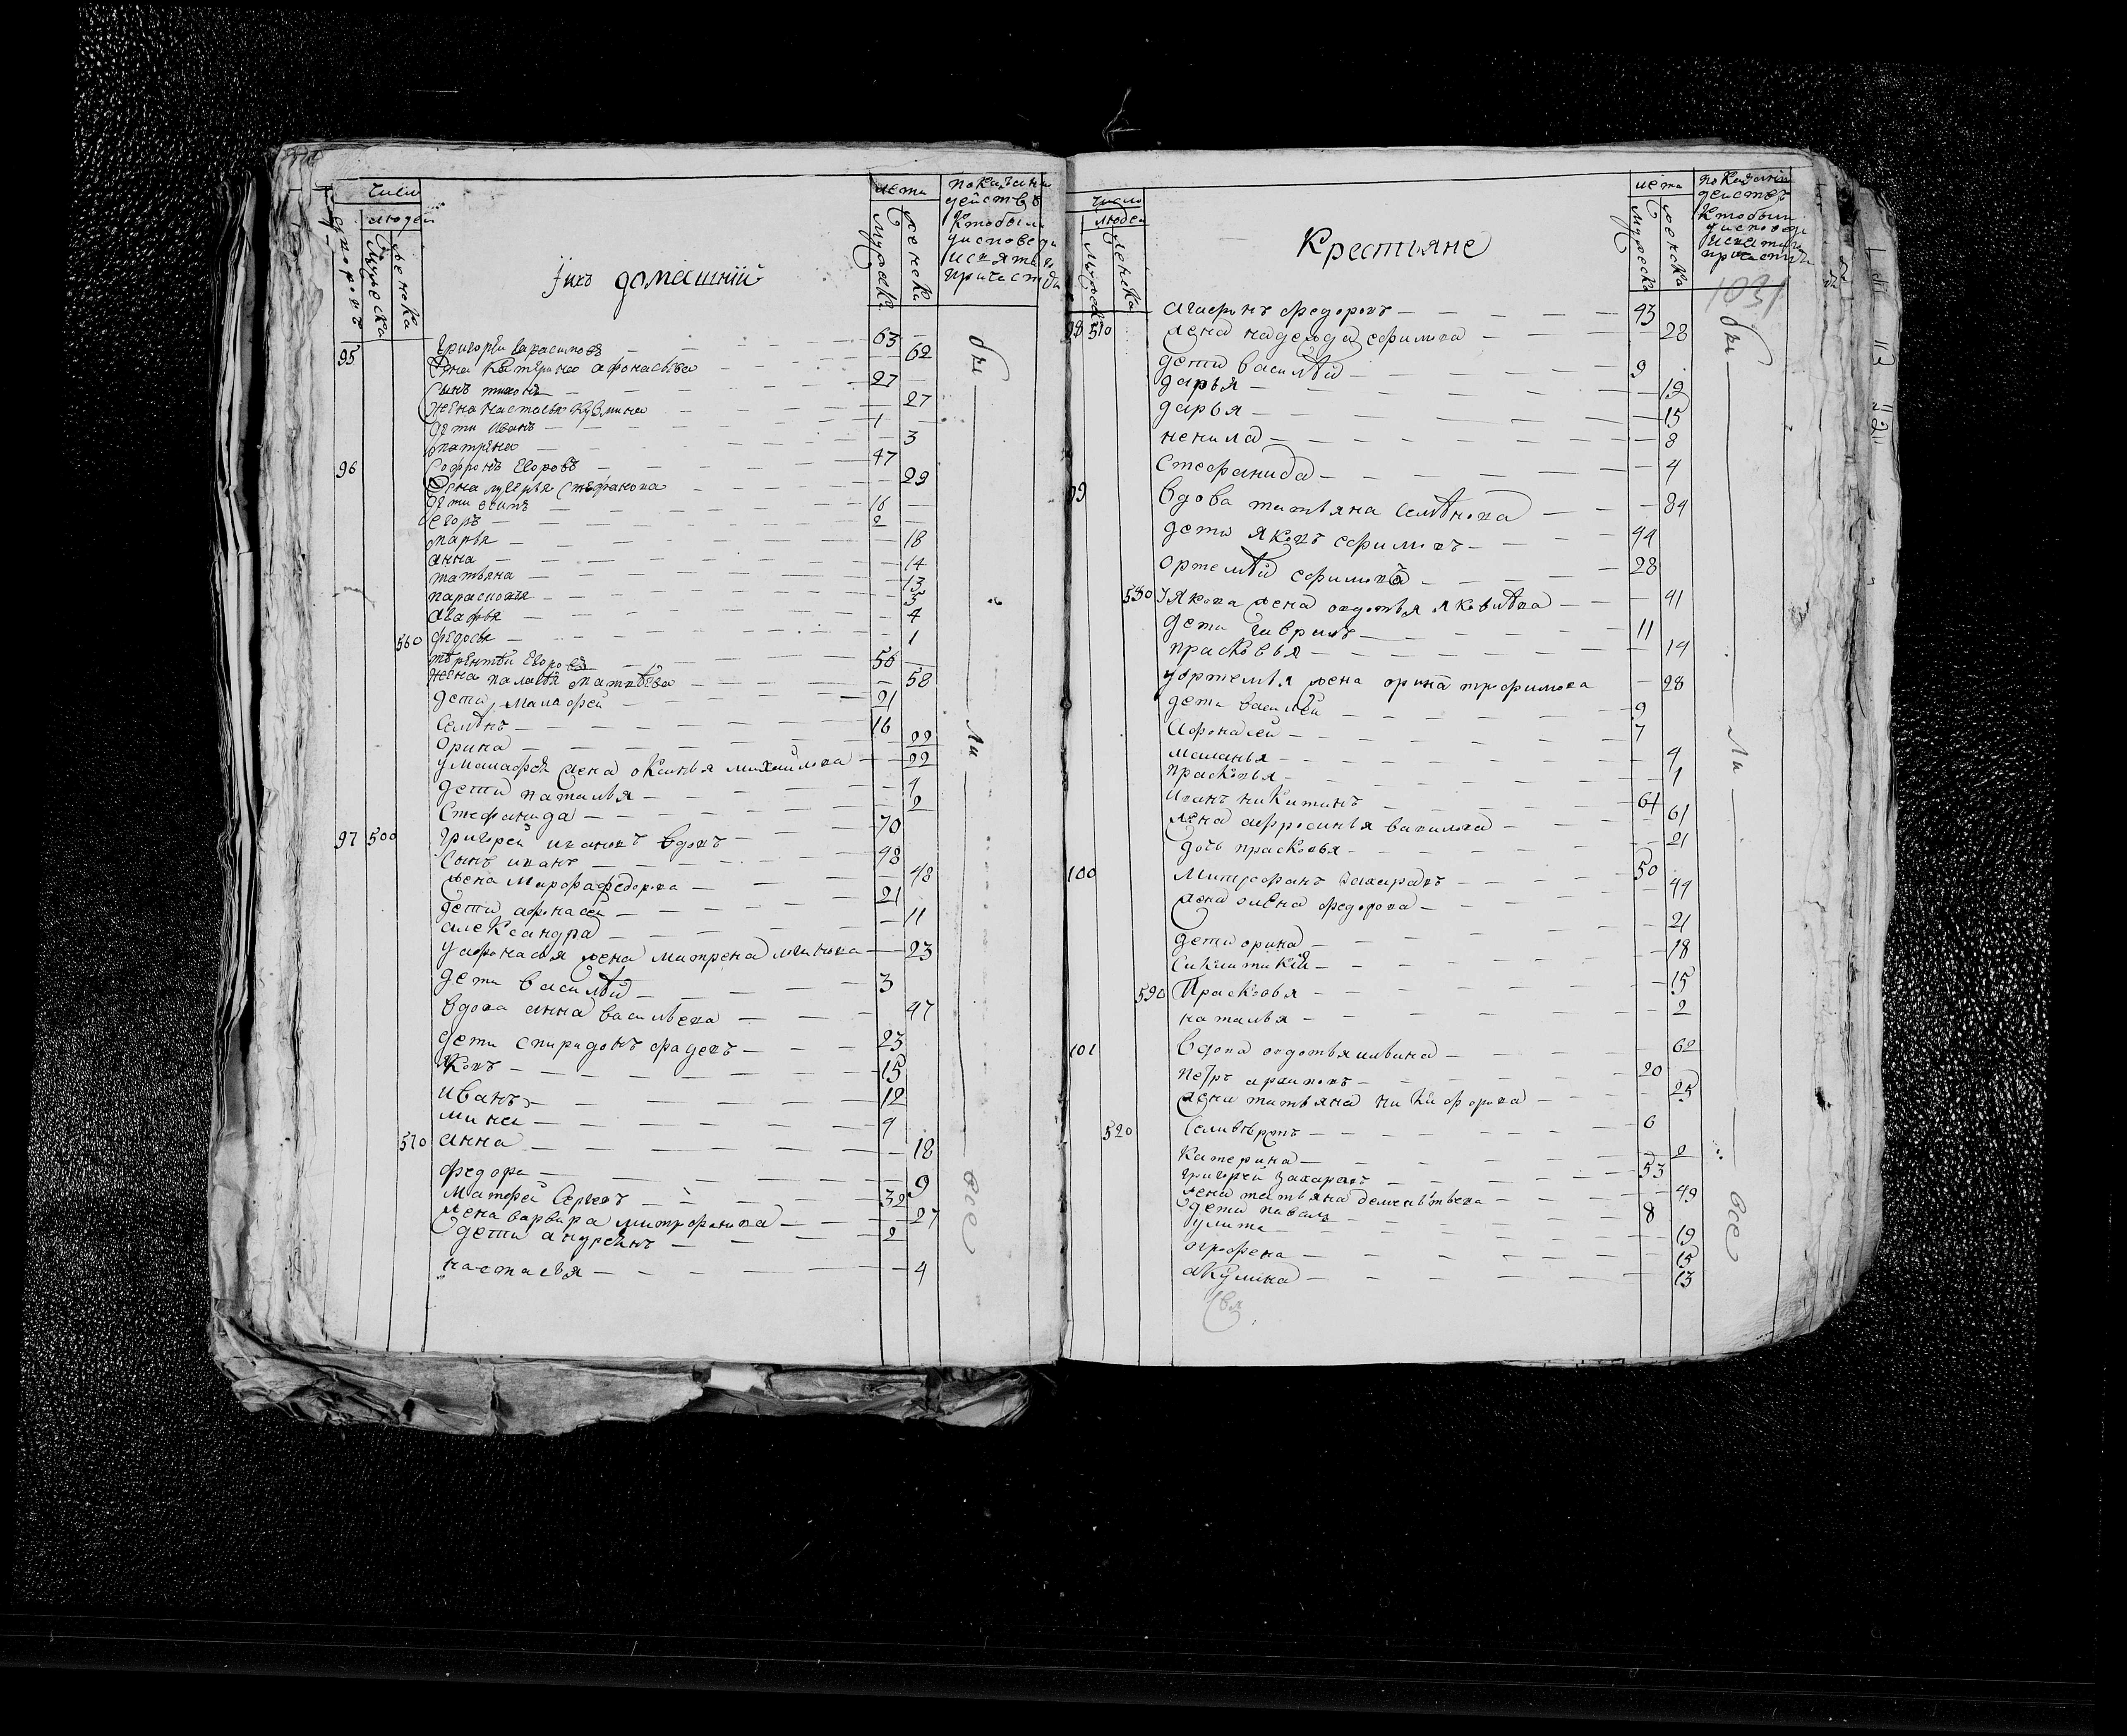 Число
людей
дворовъ
Мужеска
женска
Ихъ домашнiи
лета
Мужеска
женска
показани
действъ
Кто были
у исповеди
и святаго
причастия
95 Григорей Герасимовъ 63
Жена Катерина афонасьева 62
Сынъ тихонъ 27
жена настасья кузмина 27
дети Иванъ 1
матрена 3
96 Софронъ Егоровъ 47
Жена лукерья Стефанова 29
дети осипъ 16
егоръ 2
марья 18
анна 14
татьяна 13
парасковья 5
агафья 4
560 федосья 1
терентей Егоровъ 56
жена палагея матвеева 58
дети Малафей 21
Семѣнъ 16
Орина 22
у Малафея жена оксинья михайлова 22
дети наталья 4
Стефанида 2
97 500 Григорей ивановъ вдовъ 70
Сынъ иванъ 48
жена Марфа федорова 48
дети афонасеи 21
александра 11
у афонасья жена матрена логинова 23
дети василѣй 3
вдова анна васильева 47
дети спиридонъ фадеевъ 23
Кон 15
Иванъ 12
мина 9
570 анна 18
федора 9
Матфей Сергеевъ 32
жена варвара митрофанова 27
дети андреянъ 2
настасья 4
Число
людей
Мужеска
женска
Крестьяне
лета
Мужеска
женска
показании
действъ
Кто были
у исповеди
и святаго
причастия
1301
98 510 Агафонъ федоровъ 43
жена надежда ефимова 28
дети василѣй 9
дарья 19
дарья 15
ненила 8
Стефанида 4
99 вдова татьяна Семѣнова 84
дети яковъ ефимовъ 44
ортемѣй ефимовъ 28
У якова жена овдотья яковлева 41
дети гаврилъ 11
прасковья 14
у ортемья жена орина трофимова 28
дети василей 9
Афонасеи 7
маланья 4
прасковья 1
Иванъ никитинъ 64
жена афросинья вавилова 61
дочь прасковья 21
100 Митрофанъ Захаровъ 50
жена олена федорова 44
дети орина 21
18
590 Прасковья 15
наталья 2
101 вдова овдотья ильина 62
петръ архиповъ 20
жена татьяна никифорова 25
520 Селивѣрстъ 6
катерина 2
григорей Захаровъ 53
жена татьяна дементьева 49
дети павелъ 8
улита 19
огрофена 15
акулина 13
бы
ли
все
бы
ли
все